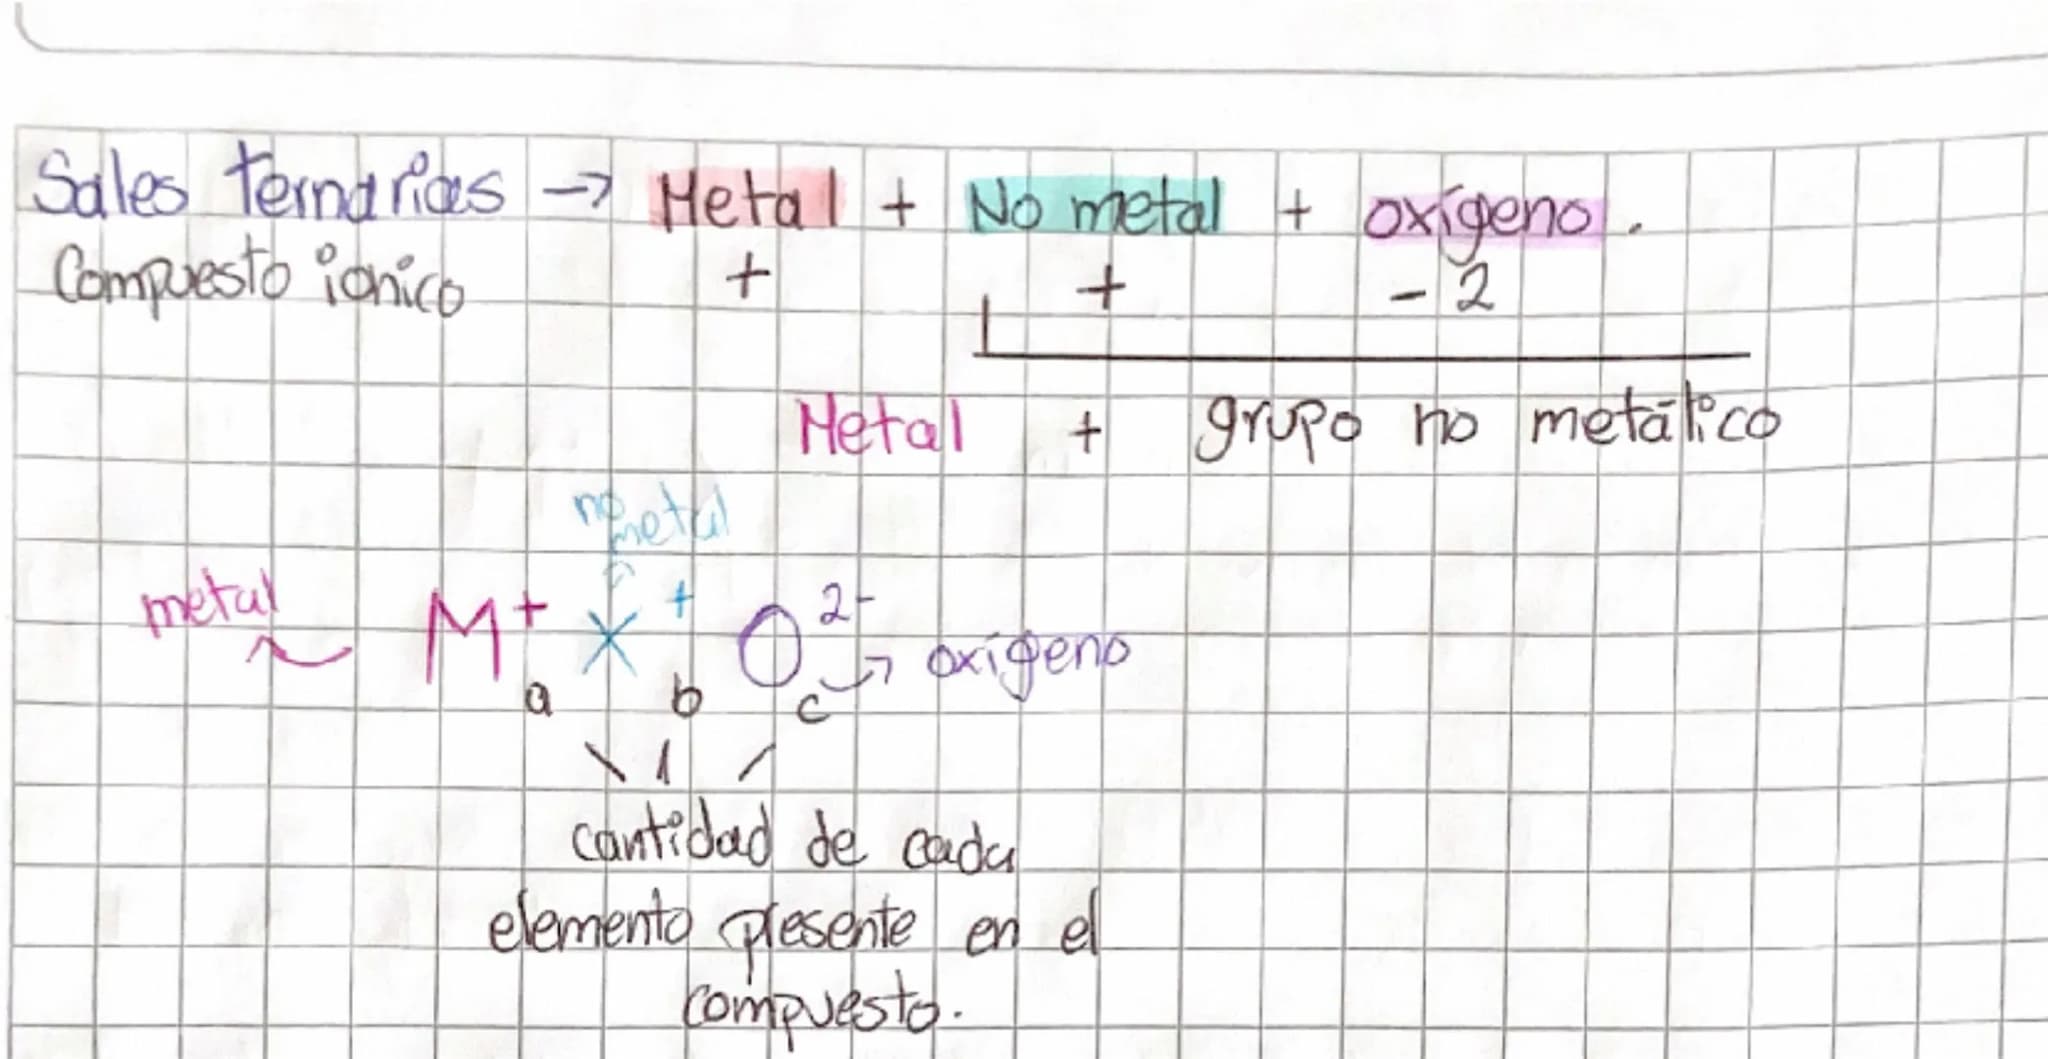 Sales ternarias → Metal + No metal + oxígeno.
Compuesto iónico + + - 2
Metal + grupo no metálico
no metal
metal M+a X+b O2-c → oxígeno
cantidad de cada
elemento presente en el
compuesto.